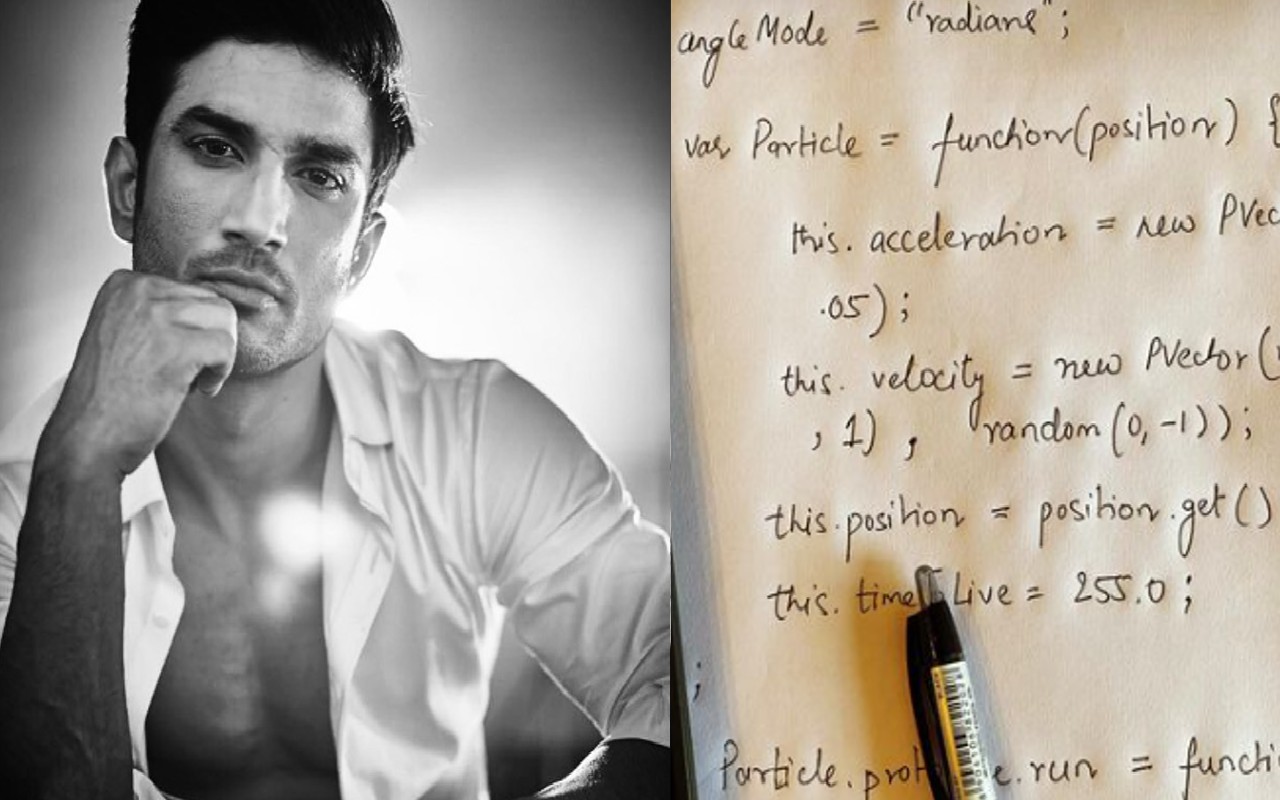 angleMode = "radians";
var Particle = function(position) {
this. acceleration = new PVec
.05);
this. velocity = new PVector(
, 1) , random(0, -1));
this.position = position.get()
this. time Live = 255.0 ;
;
Particle.prot e.run = functi